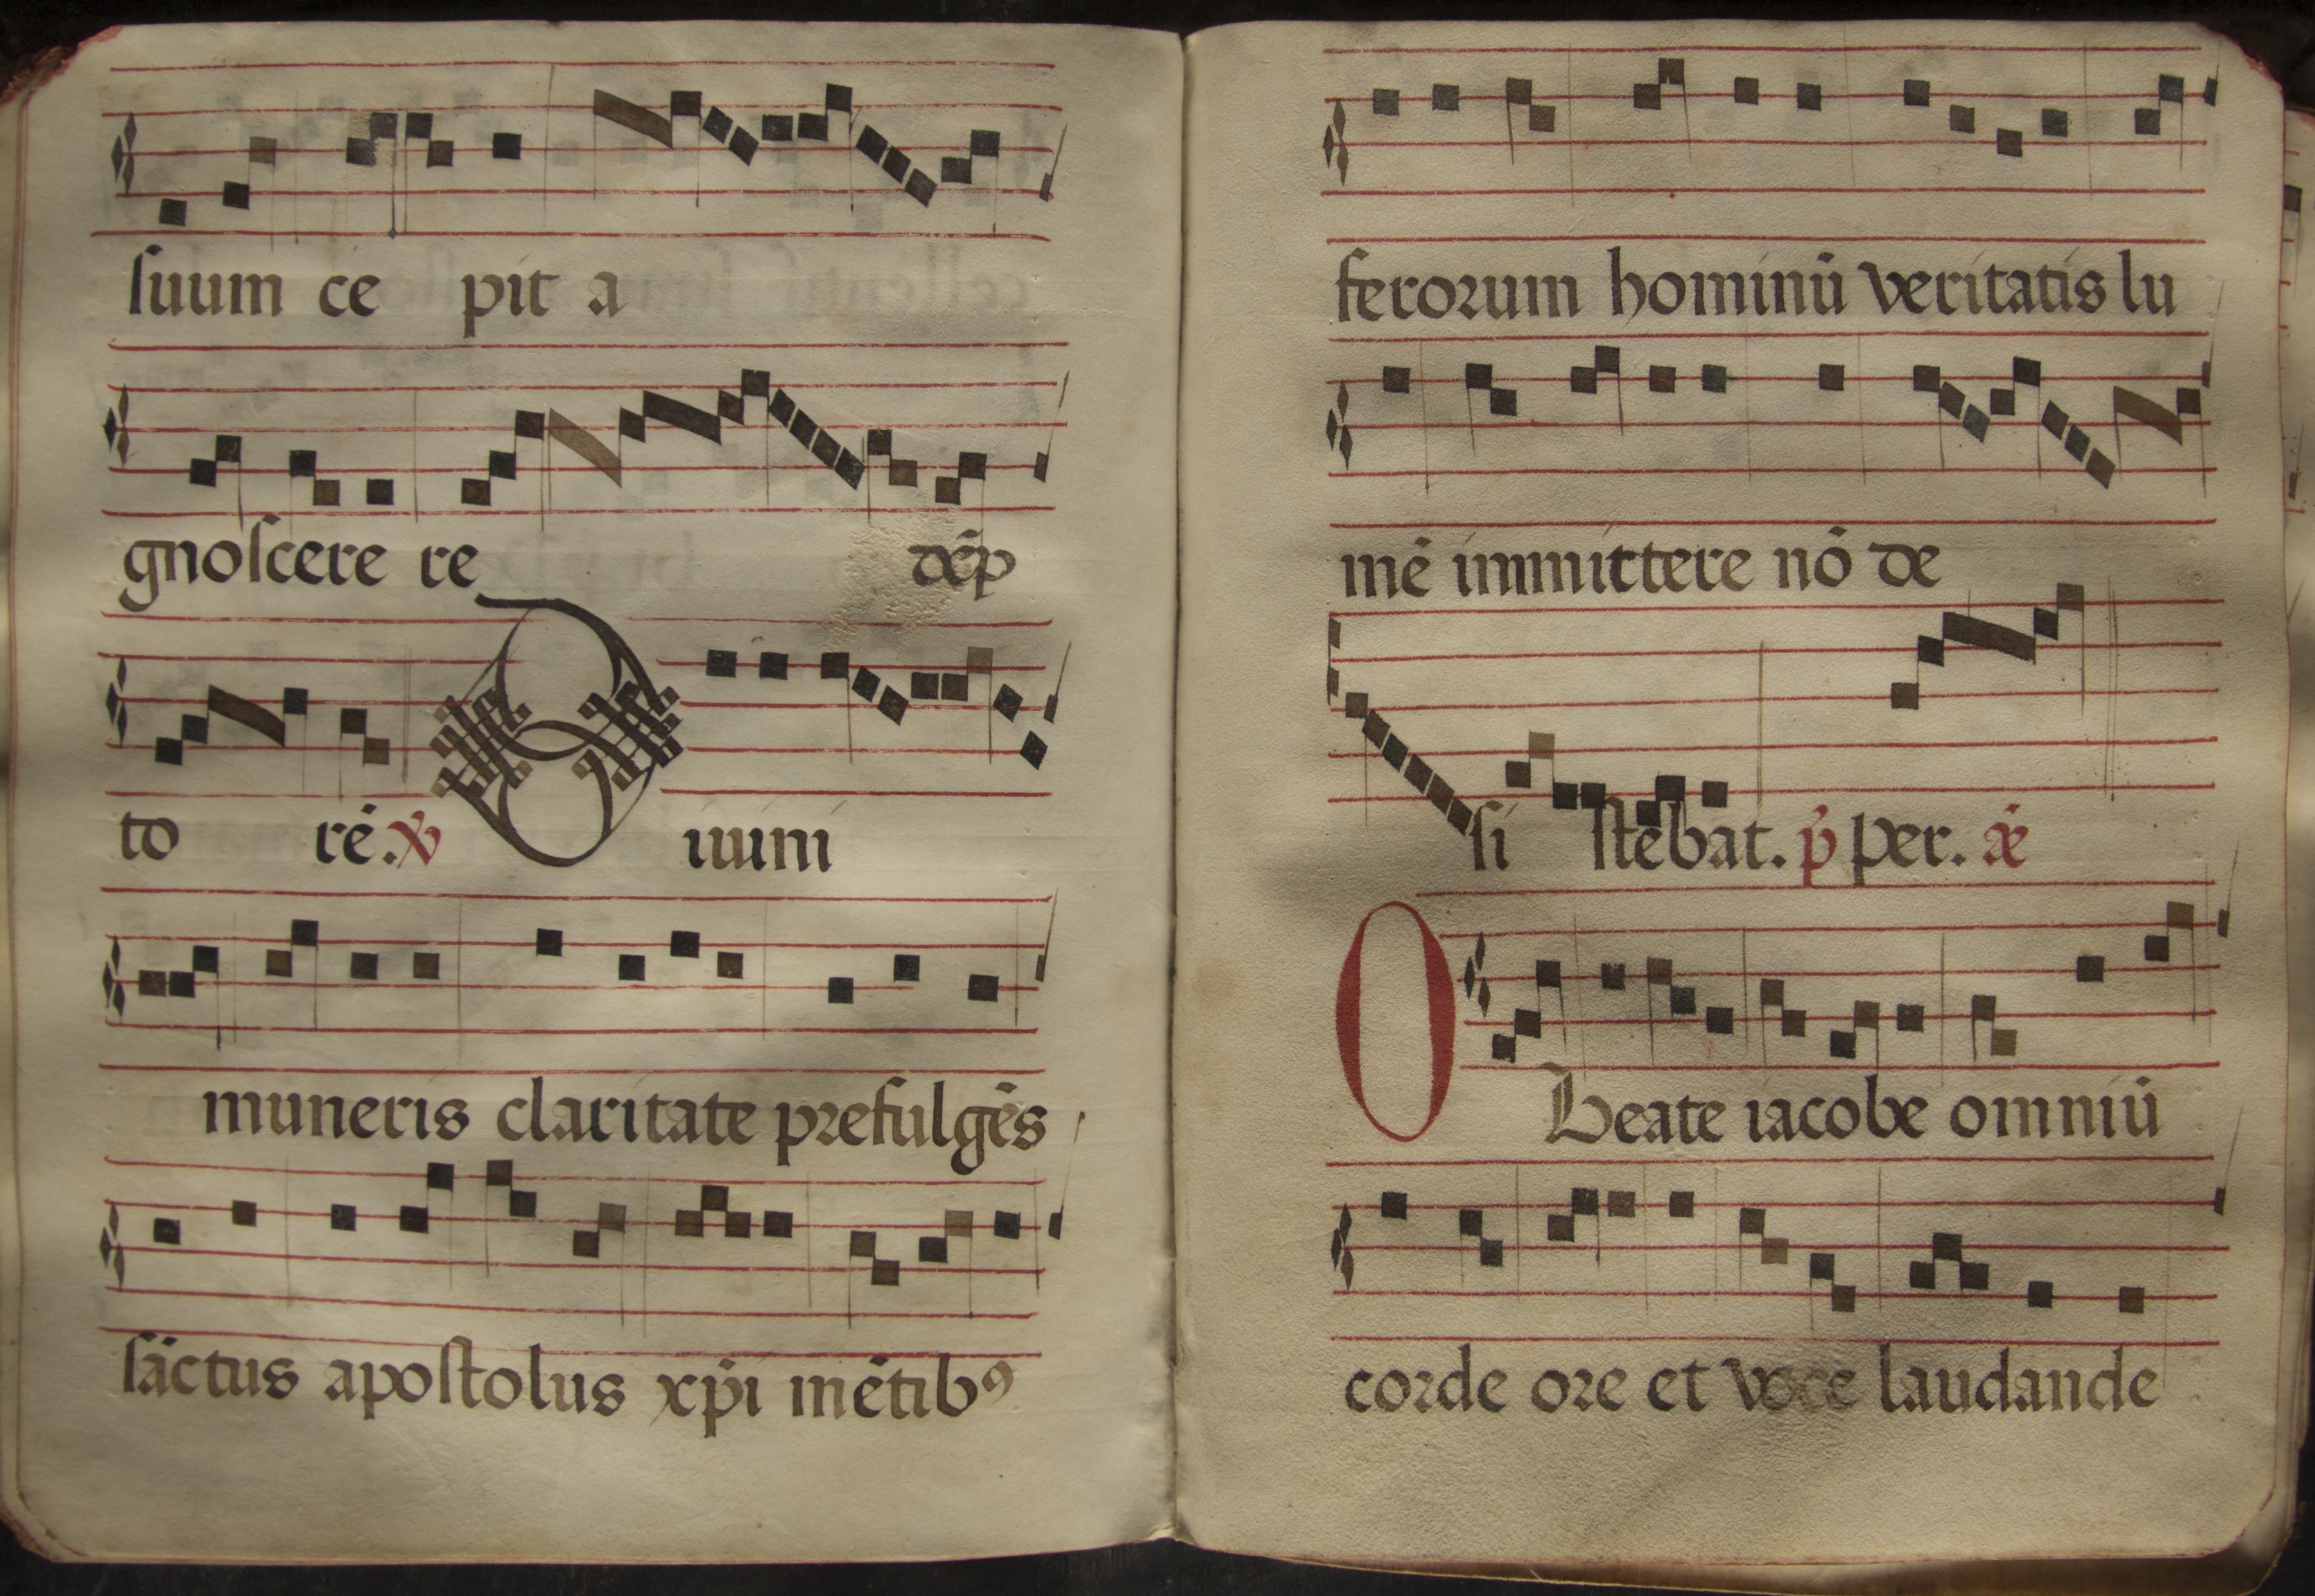 suum ce pit a
gnoscere re dēp
to rē. ℣ Diuini
muneris claritate prefulgēs
sāctus apostolus xp̄i mētibꝰ
ferorum hominū veritatis lu
mē immittere nō de
si stebat. p̄ per. ǣ
O Beate iacobe omniū
corde ore et voce laudande